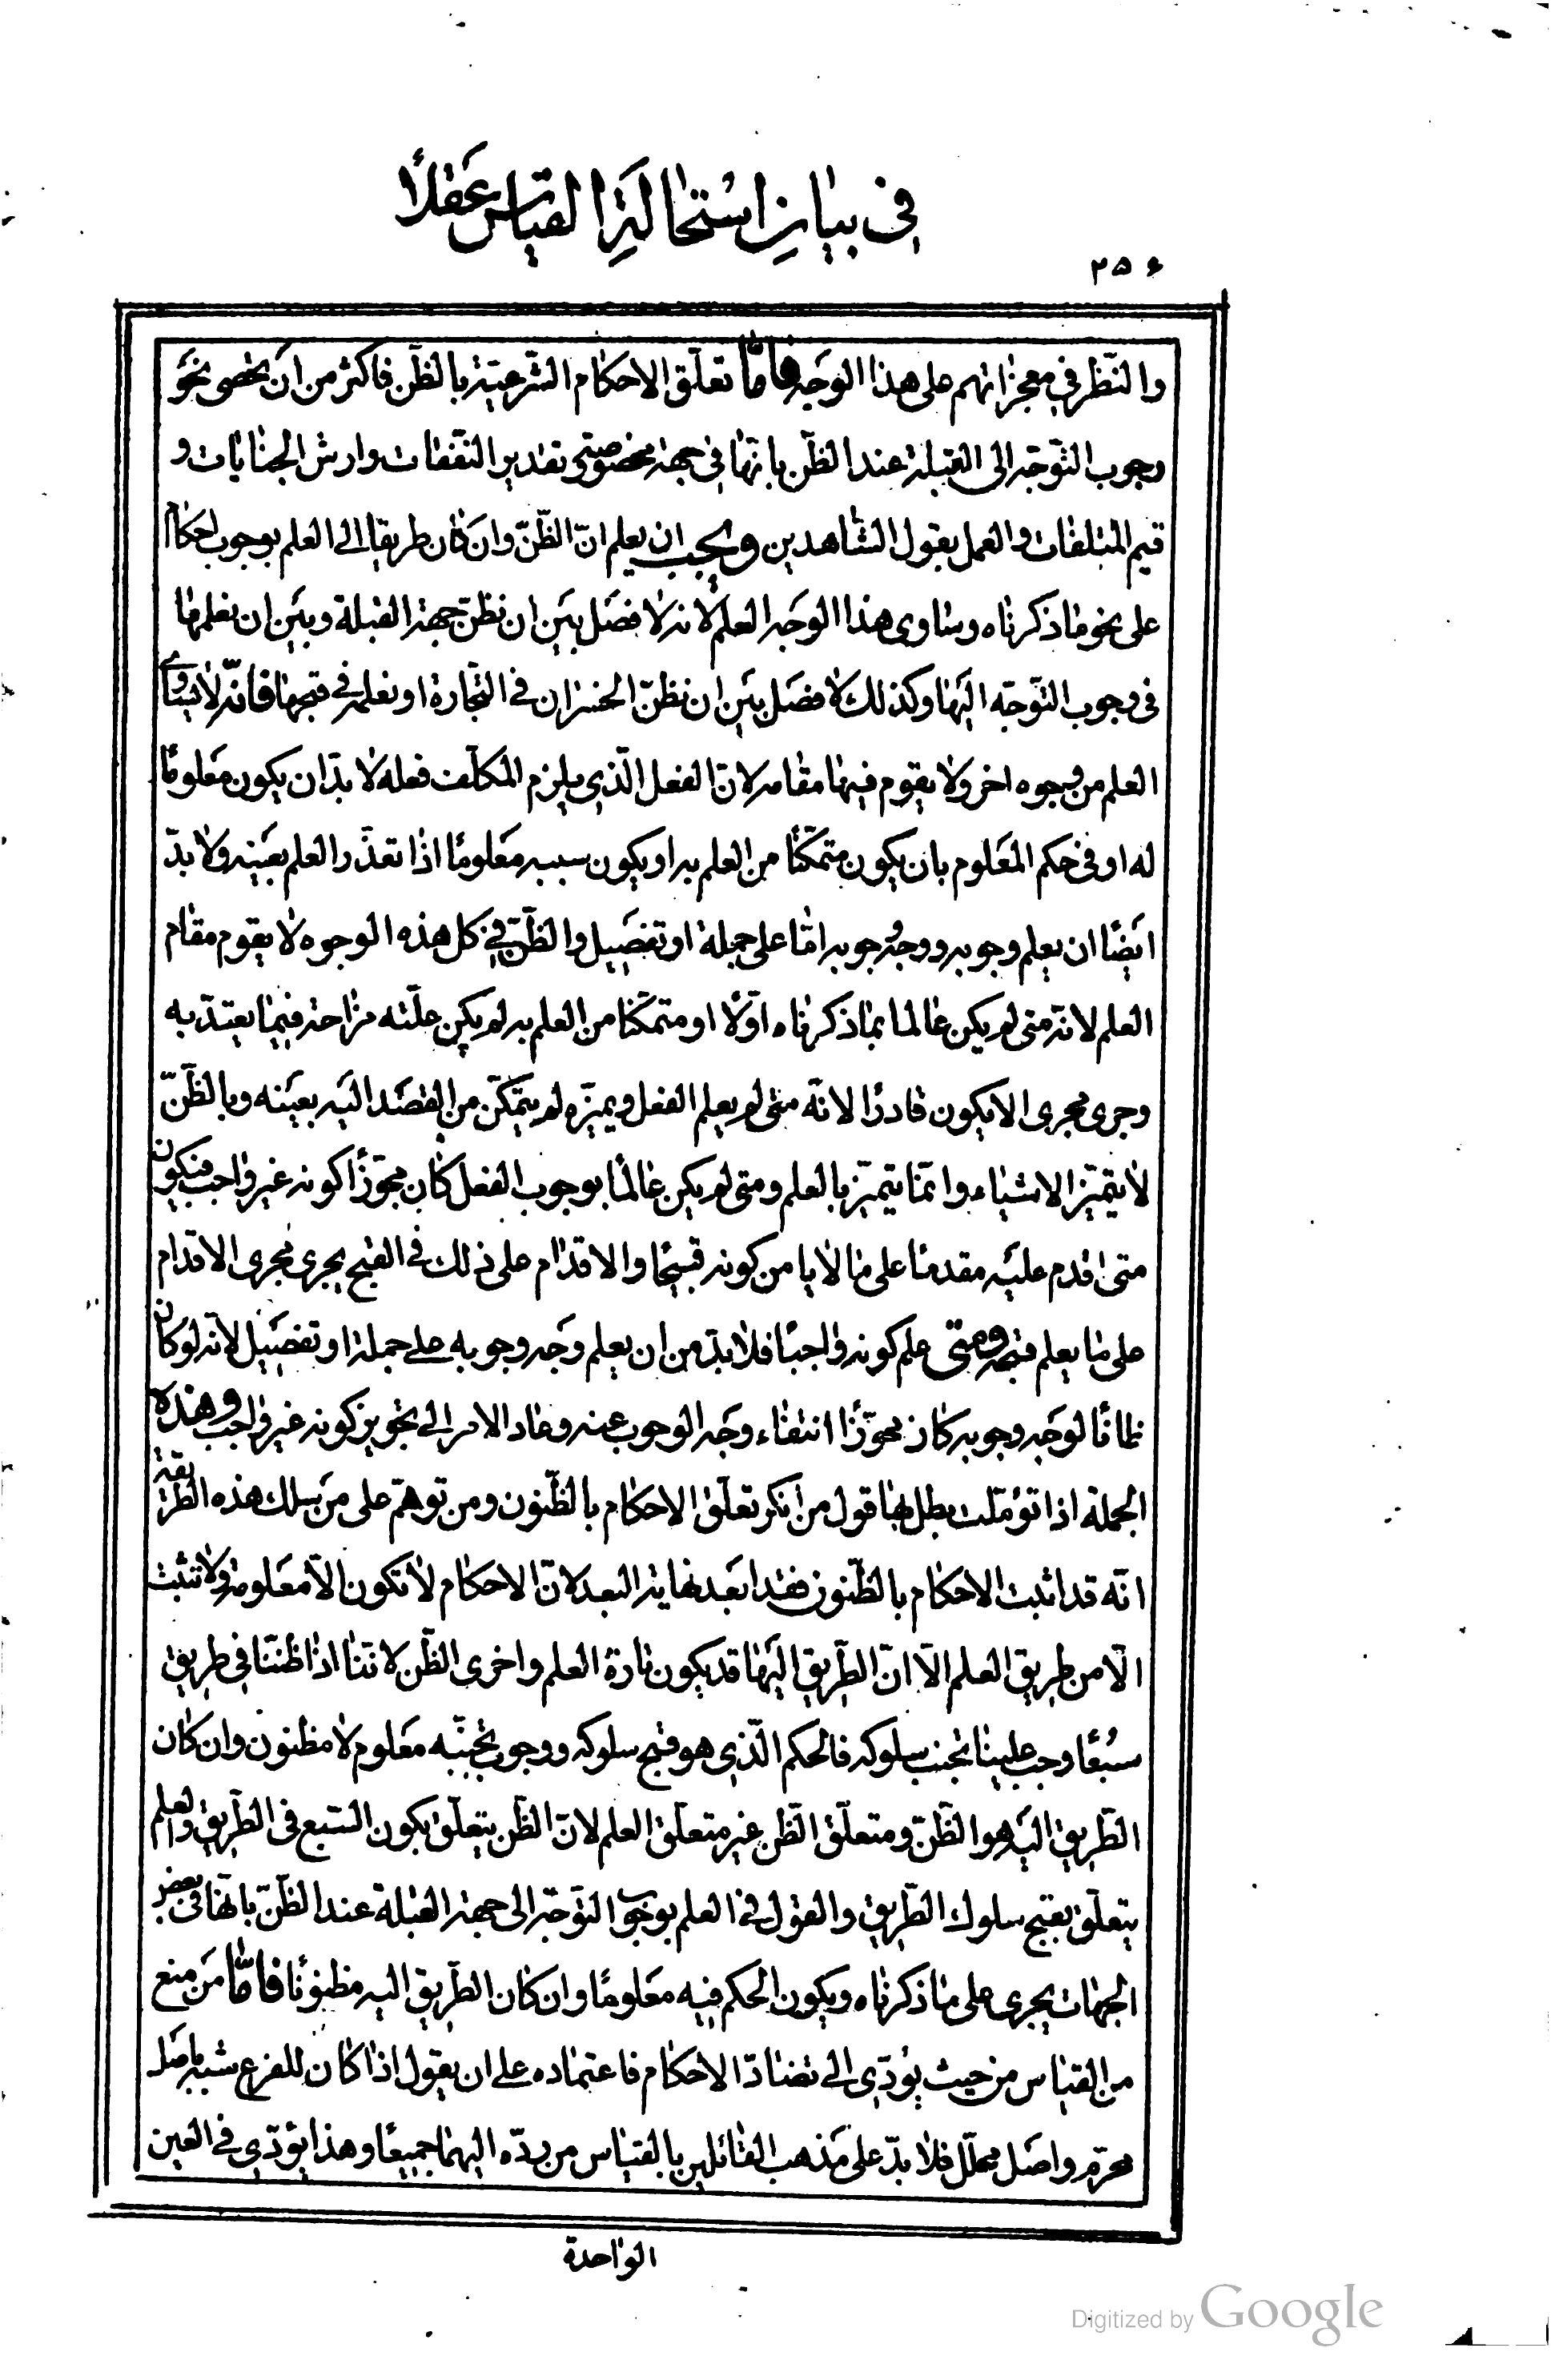 في بيان استحالة القياس عقلاً
٢٥۶
والنّظر في معجزاتهم على هذا الوجه فامّا تعلّق الاحكام الشّرعيّة بالظّن فاكثر من ان يحصى نحو
وجوب التّوجّه الى القبلة عند الظّن بانّها في جهة مخصوصة وتقدير النّفقات وارش الجنايات و
قيم المتلفات والعمل بقول الشّاهدين ويجب ان يعلم انّ الظّنّ وان كان طريقا الى العلم بوجوب احكام
على نحو ما ذكرناه وساوى هذا الوجه العلم لانه لا فصل بين ان نظنّ جهة القبلة وبين ان نعلمها
في وجوب التّوجّه اليها وكذلك لا فصل بين ان نظنّ الخسران في التّجارة او نعلمه في قبحها فانّه لا يساوي
العلم من وجوه اخر ولا يقوم فيها مقامه لانّ الفعل الّذي يلزم المكلّف فعله لا بدّ ان يكون معلومًا
له او في حكم المعلوم بان يكون متمكّنًا من العلم به او يكون سببه معلومًا اذا تعذّر العلم بعينه ولا بدّ
ايضًا ان يعلم وجوبه ووجه وجوبه امّا على جملة او تفصيل والظّنّ في كل هذه الوجوه لا يقوم مقام
العلم لانّه متى لم يكن عالما بما ذكرناه اوّلًا او متمكّنا من العلم به لم يكن علّته مزاحة فيما يعتدّ به
وجرى مجرى الا يكون قادرًا لانّه متى لم يعلم الفعل ويميزه لم يتمكّن من القصد اليه بعينه وبالظّنّ
لا يتميّز الاشياء وانّما يتميّز بالعلم ومتى لم يكن عالمًا بوجوب الفعل كان مجوّزًا كونه غير واجب فيكون
متى اقدم عليه مقدمًا على ما لا يامن كونه قبيحًا والاقدام على ذلك في القبح يجري مجرى الاقدام
على ما يعلم قبحه ومتى علم كونه واجبًا فلا بدّ من ان يعلم وجه وجوبه على جملة او تفصيل لانّه لو كان
ظانًا لوجه وجوبه كان مجوّزًا انتفاء وجه الوجوب عنه وعاد الامر الى تجويز كونه غير واجب وهذه
الجملة اذا تؤمّلت بطل بها قول من انكر تعلّق الاحكام بالظّنون ومن توهّم على من سلك هذه الطّريقة
انّه قد اثبت الاحكام بالظّنون فقد ابعد نهاية البعد لانّ الاحكام لا تكون الّا معلومة ولا تثبت
الّا من طريق العلم الّا انّ الطّريق اليها قد يكون تارة العلم واخرى الظّن لانّنا اذا ظننّا في طريق
سبُعًا وجب علينا تجنب سلوكه فالحكم الّذي هو قبح سلوكه ووجوب تجنّبه معلوم لا مظنون وان كان
الطّريق اليه هو الظّنّ ومتعلّق الظّن غير متعلّق العلم لانّ الظّن يتعلّق بكون السّبع في الطّريق والعلم
يتعلّق بقبح سلوك الطّريق والقول في العلم بوجوب التّوجّه الى جهة القبلة عند الظّنّ بانّها في بعض
الجهات يجري على ما ذكرناه ويكون الحكم فيه معلومًا وان كان الطّريق اليه مظنونًا فامّا من منع
من القياس من حيث يؤدّي الى تضادّ الاحكام فاعتماده على ان يقول اذا كان للفرع شبه باصل
محرّم واصل محلّل فلا بدّ على مذهب القائلين بالقياس من ردّه اليهما جميعًا وهذا يؤدّي في العين
الواحدة
Digitized by Google